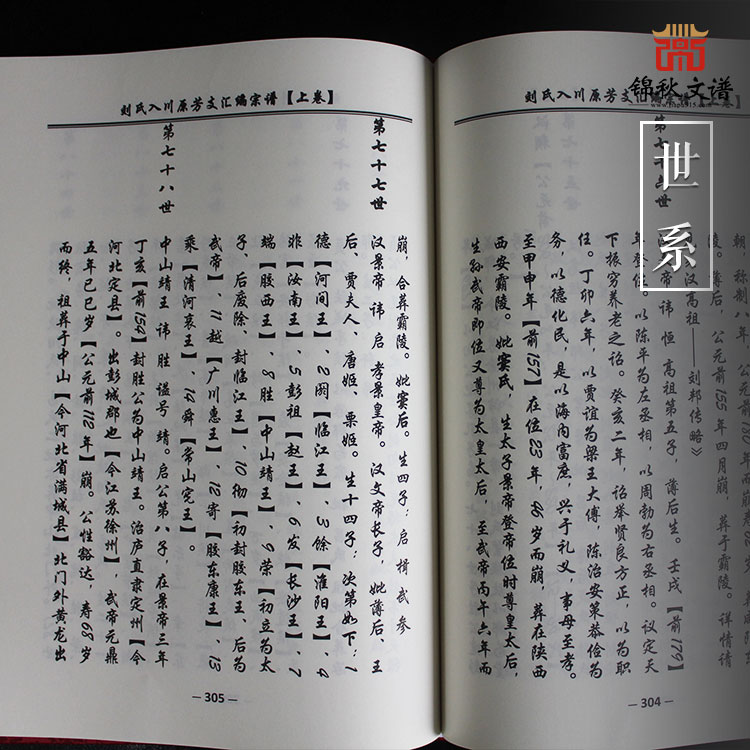 锦秋文谱
世系
刘氏入川原芳文汇编宗谱【上卷】
陵。薄后，公元前155年四月崩，葬于霸陵。详情请
汉高祖——刘邦传略》
帝 讳 恒 高祖第五子，薄后生。壬戌【前179
年登位。以陈平为左丞相，以周勃为右丞相。议定天
下振穷养老之诏。癸亥二年，诏举贤良方正，以为职
任。丁卯六年，以贾谊为梁王大傅，陈治安策恭俭为
务，以德化民，是以海内富庶，兴于礼义，事母至孝。
至甲申年【前157】在位23年，46岁而崩，葬在陕西
西安霸陵。妣窦氏，生太子景帝登帝位时尊皇太后，
生孙武帝即位又尊为太皇太后，至武帝丙午六年而
— 304 —
刘氏入川原芳文汇编宗谱【上卷】
崩，合葬霸陵。妣窦后。生四子：启 揖 武 参
第七十七世
汉景帝 讳 启 孝景皇帝。汉文帝长子，妣薄后、王
后、贾夫人、唐姬、栗姬。生十四子：次第如下：1
德【河间王】、2阏【临江王】、3馀【淮阳王】、4
非【汝南王】、5彭祖【赵王】、6发【长沙王】、7
端【胶西王】、8胜【中山靖王】、9荣【初立为太
子、后废除、封临江王】、10彻【初封胶东王、后为
武帝】、11越【广川惠王】、12寄【胶东康王】、13
乘【清河哀王】、14舜【常山宪王】。
第七十八世
中山靖王 讳 胜 谥号 靖。启公第八子，在景帝三年
丁亥【前154】封胜公为中山靖王。治庐直隶定州【今
河北定县】。出彭城郡也【今江苏徐州】，武帝元鼎
五年己巳岁【公元前112年】崩。公性豁达，寿68岁
而终，祖葬于中山【今河北省满城县】北门外黄龙出
— 305 —